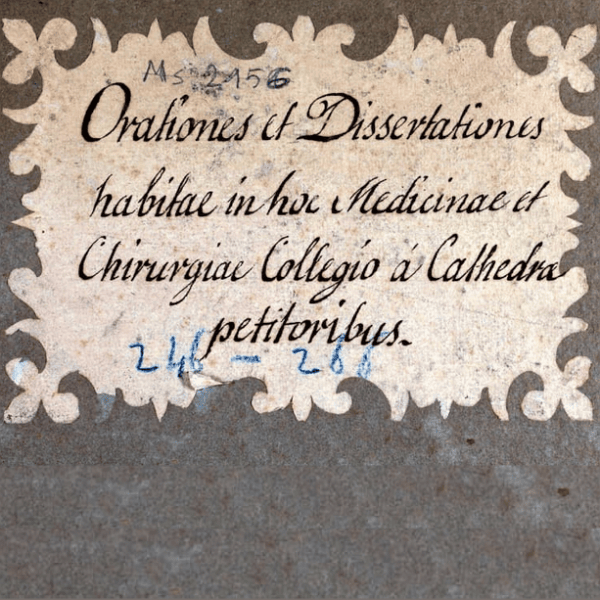 Ms 2156
Orationes et Dissertationes
habitae in hoc Medicinae et
Chirurgiae Collegio á Cathedrae
petitoribus.
246 - 266